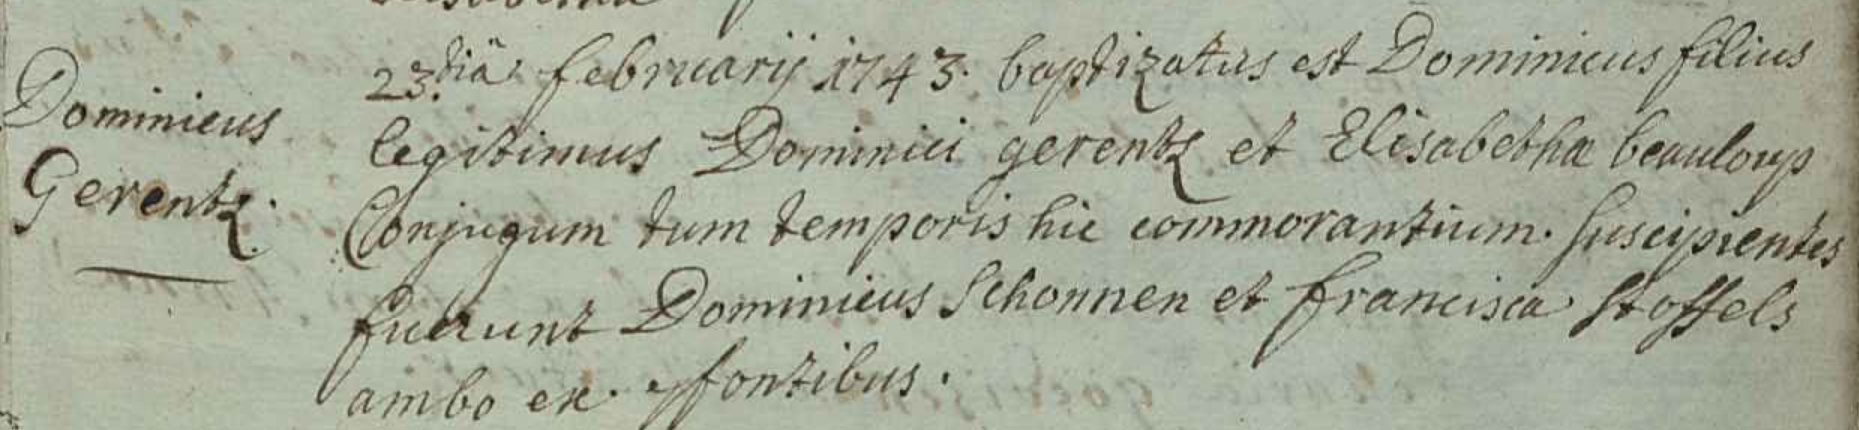 Dominicus
Gerentz.
23.tiâ februarij 1743. baptizatus est Dominicus filius
legitimus Dominici gerentz et Elisabethæ beauloup
Conjugum tum temporis hic commorantium. suscipientes
fuerunt Dominicus Schonnen et francisca stoffels
ambo ex fontibus.